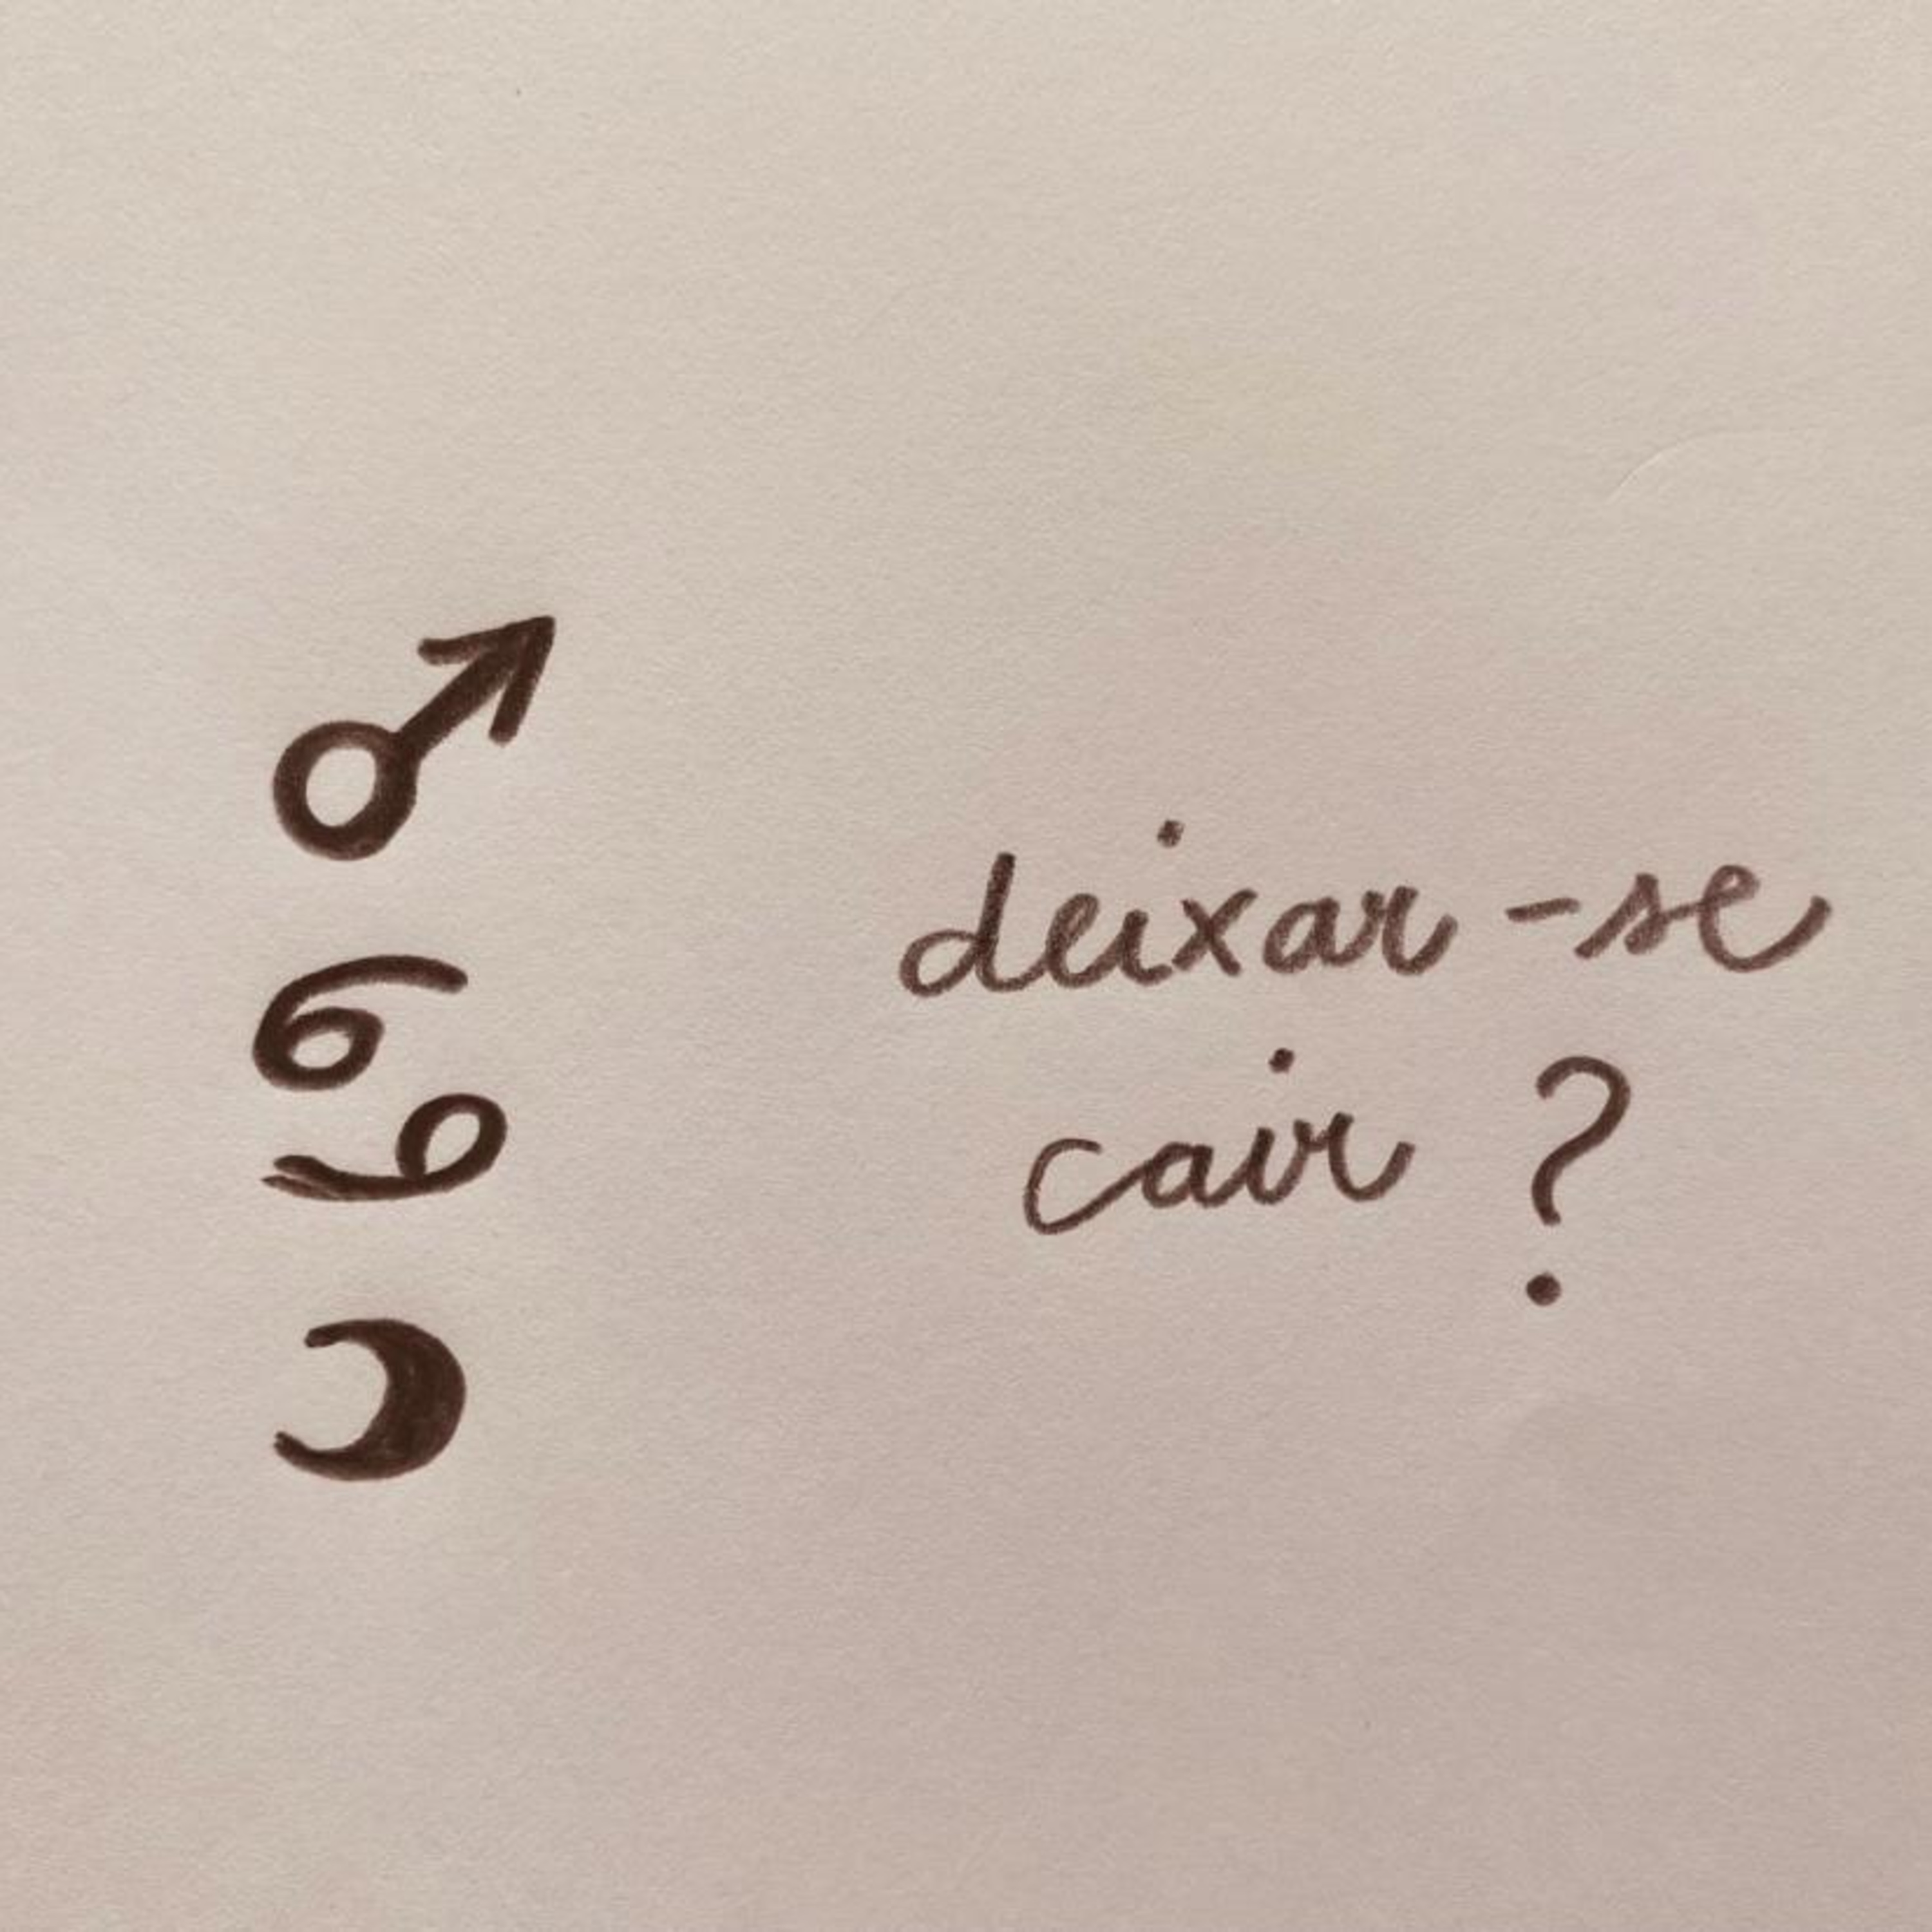 ♂
♋
☽
deixar-se
cair ?